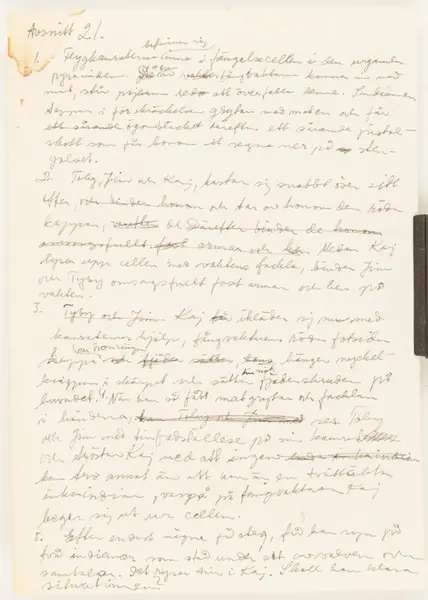 Avsnitt 21.
befinner sig
1. Flygkamraterna inne i fängelsecellen i den urgamla
pyramiden. fångvaktaren kommer in med
mat, står pojkarna redo att överfalla denne. Indianen
tappar i förskräckelsen grytan med maten och får
ett därefter ett
skott som får honom att segna ner på sten-
golvet.
2. Toby, Jim och Kaj, kastar sig snabbt över sitt
offer, och binder honom och tar av honom den röda
kappan, Därefter binder de honom
omsorgsfullt fast armar och ben Medan Kaj
lyser upp cellen med vaktens fackla, binder Jim
och Toby omsorgsfullt fast armar och ben på
vakten.
3. Toby och Jim. Kaj ikläder sig nu med
kamraternas hjälp, fångvaktarens röda fotsida
kappa hänger nyckel-
knippan i skärpet och sätter fjäderskruden på
huvudet. 4. När han så fått matgrytan och facklan
i händerna, kan Toby och Jim med ser Toby
och Jim med på sin kamrat
och tröstar Kaj med att ingen
kan tro annat än att han är en
inkaindian, fångvaktaren Kaj
beger sig ut ur cellen.
5. Efter endast några få steg, får han syn på
två indianer som står under ett och
samtalar. Det ryser till i Kaj. Skall han klara
situationen?